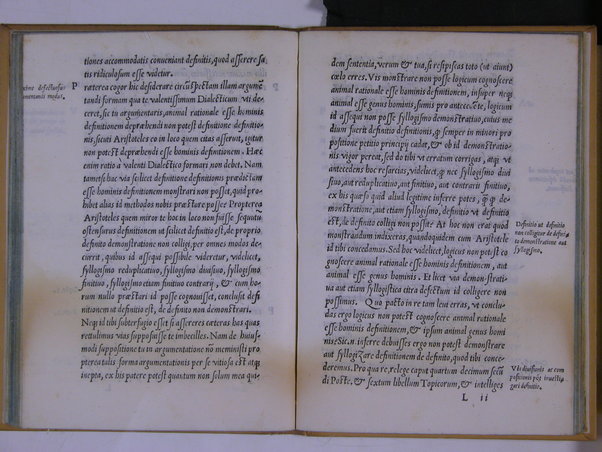 tiones accommodatis conueniant definitis, quod asserere sa
tis ridiculosum esse videtur.
Praeterea cogor hic desiderare circũspectam illam argumẽ
tandi formam quae te valentissimum Dialecticum vti de
ceret, sic tu argumentaris, animal rationale esse hominis
definitionem depraehendi non potest definitione definitio-
nis, sicuti Aristoteles eo in loco quem citas asserat, igitur
non potest depraehendi esse hominis definitionem. Haec
enim ratio à valenti Dialectico formari non debet. Nam
tametsi hac via scilicet definitione definitionis praedictam
esse hominis definitionem monstrari non posset, quid pro-
hibet alias id methodos nobis praestare posse? Propterea
Aristoteles quem miror te hoc in loco non fuisse sequutũ
ostensurus definitionem ut scilicet definitio est, de proprio
definito demonstratione non colligi, per omnes modos di-
currit, quibus id assequi possibile videretur, videlicet,
syllogismo reduplicatiuo, syllogismo diuisiuo, syllogismo
finitiuo, syllogismo etiam finitiuo contrarij, & cum ho-
rum nullo praestari id posse cognouisset, conclusit defi
nitionem ut definitio est, de definito non demonstrari.
Neq; id tibi subterfugio esset si assereres caeteras has quas
rettulimus vias supposuisse te imbecelles. Nam de huius-
modi suppositione tu in argumentatione nõ meministi pro
pterea talis forma argumentationis per se vitiosa est atq;
inepta, ex his patere potest quantum non solum mea qui-
dem sententia, verum & tua, si respiscas toto (ut aiunt)
coelo erres. Vis monstrare non posse logicum cognoscere
animal rationale esse hominis definitionem, insuper neq;
animal esse genus hominis, sumis pro antecedẽte, logicum
id assequi non posse syllogismo demonstratiuo, cuius me
dium fuerit definitio definitionis, q̃ semper in minori pro
positione petitio principij cadat, & ob id demonstratio-
nis vigor pereat, sed do tibi vt erratum corrigas, atq; ut
antecedens hoc resarcias, videlicet, q̃ nec syllogismo diui
siuo, aut reduplicatiuo, aut finitiuo, aut contrarij finitiuo,
ex his quaeso quid aliud legitime inferre potes, q̃ q̃ de-
mõstratione, aut etiam syllogismo, definitio ut definitio
est, de definito colligi non possit? At hoc non erat quod
monstrandum indixeras, quandoquidem cum Aristotele
id tibi concedamus. Sed hoc videlicet, logicus non potest co
gnoscere animal rationale esse hominis definitionem, aut
animal esse genus hominis. Et licet via demonstrati-
tia aut etiam syllogistica citra defectum id colligere non
possimus. Quo pacto in re tam leui erras, vt conclu-
das ergo logicus non potest cognoscere animal rationale
esse hominis definitionem, & ipsum animal genus homi
nis? Sic.n. inferre debuisses ergo non potest demonstrare
aut syllogizare definitionem de definito, quod tibi conce-
deremus. Pro qua re, relege caput quartum decimum secũ
di Poste. & sextum libellum Topicorum, & intelliges
Definitio ut definitio
non colligitur de defini
to demonstratione aut
syllogismo.
L ii